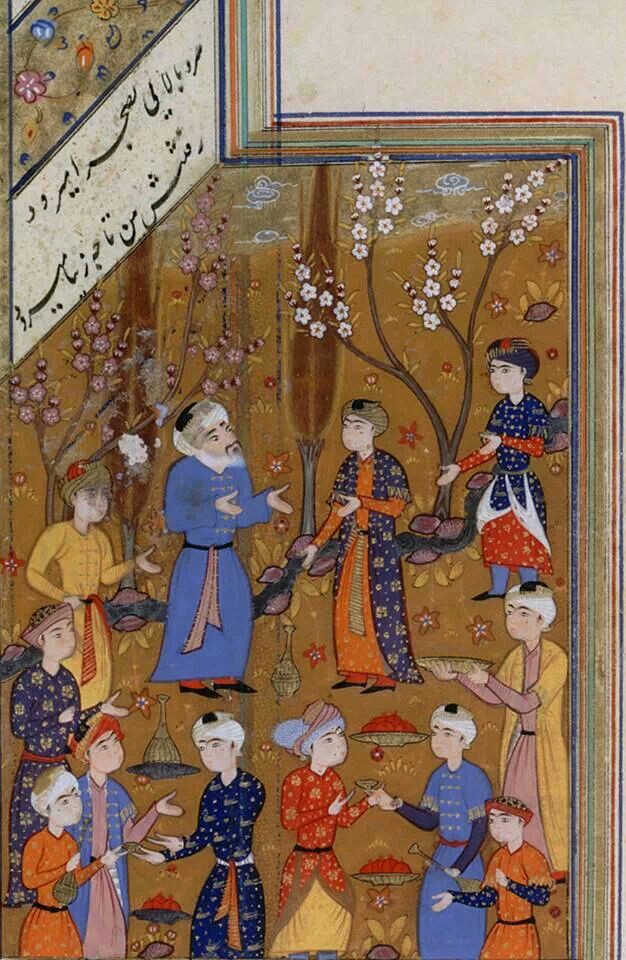 سرو بالایی بصحرا میرود
رفتنش بین تا چه زیبا میرود